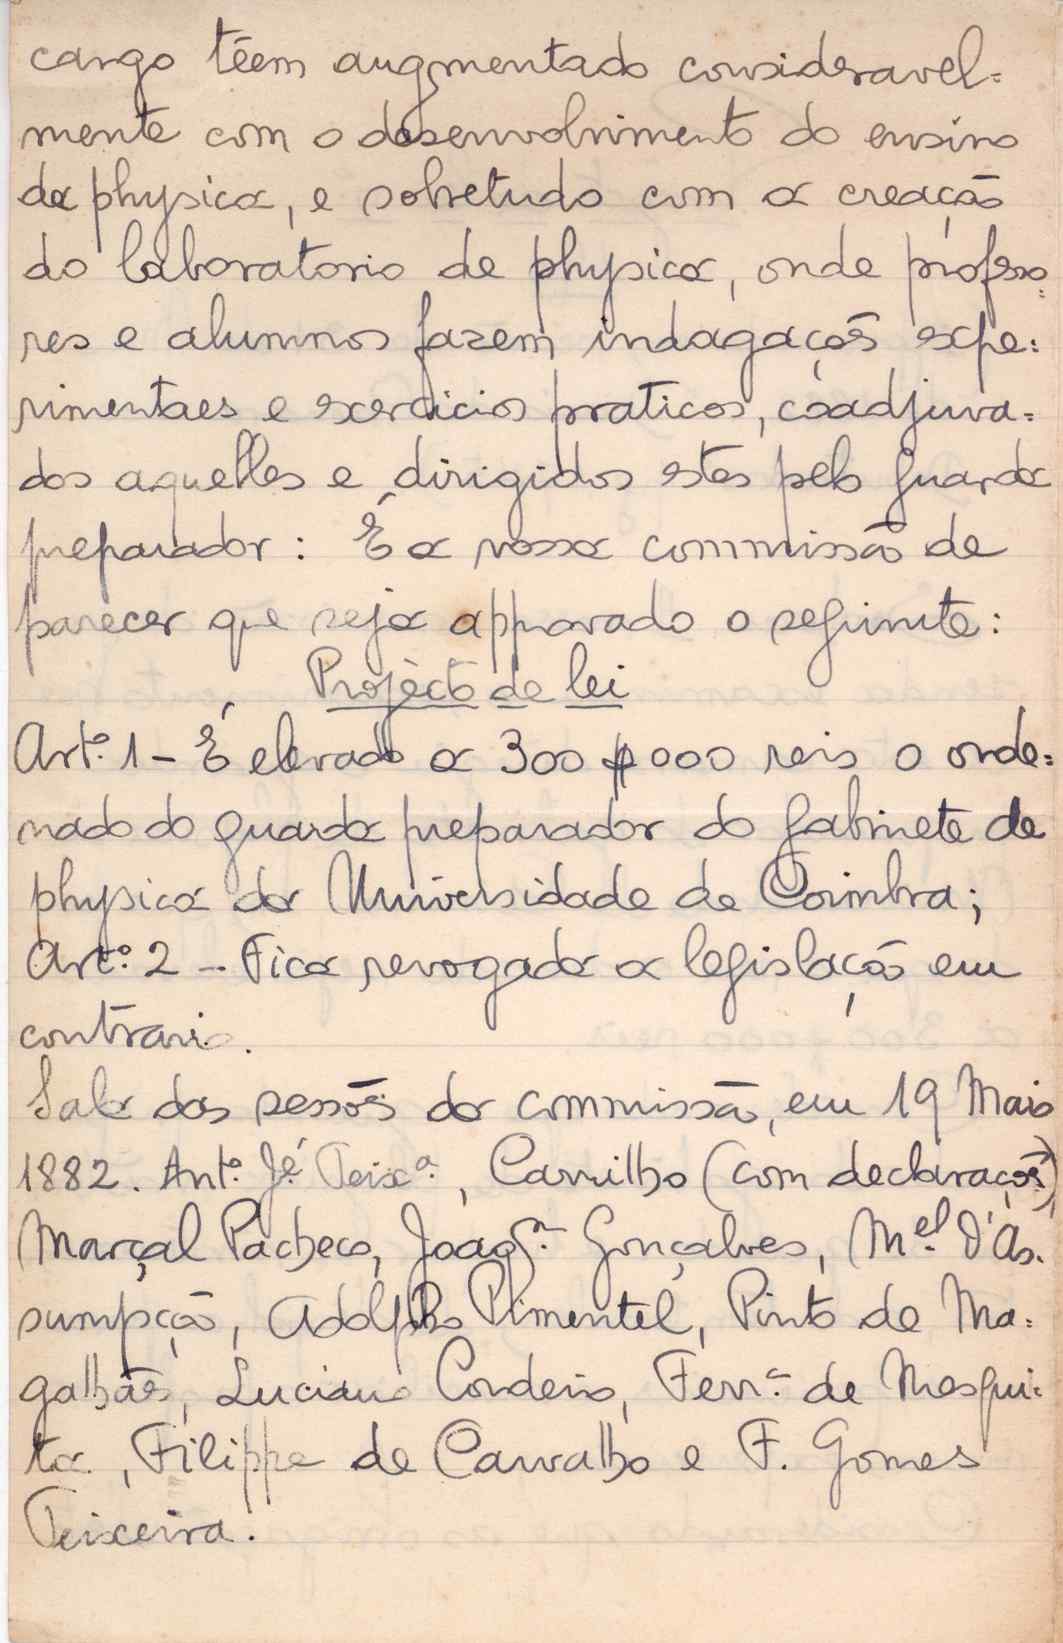 cargo têem augmentado consideravel=
mente com o desenvolvimento do ensino
da physica, e sobretudo com a creação
do laboratorio de physica, onde professo=
res e alumnos fazem indagações expe=
rimentaes e exercicios praticos, coadjuva=
dos aquelles e dirigidos estes pelo guarda
preparador: É a vossa commissão de
parecer que seja approvado o seguinte:
Projécto de lei
Art.º 1 - É elevado a 300$000 reis o orde=
nado do guarda preparador do gabinete de
physica da Universidade de Coimbra;
Art.º 2 - Fica revogada a legislação em
contrario.
Sala das sessões da commissão, em 19 Maio
1882. Ant.º J.é Teix.a, Carrilho (com declarações),
Marçal Pacheco, Joaq.m Gonçalves, M.el d'As=
sumpção, Adolpho Pimentel, Pinto de Ma=
galhães, Luciano Cordeiro, Ferr.a de Mesqui=
ta, Filippe de Carvalho e F. Gomes
Teixeira.